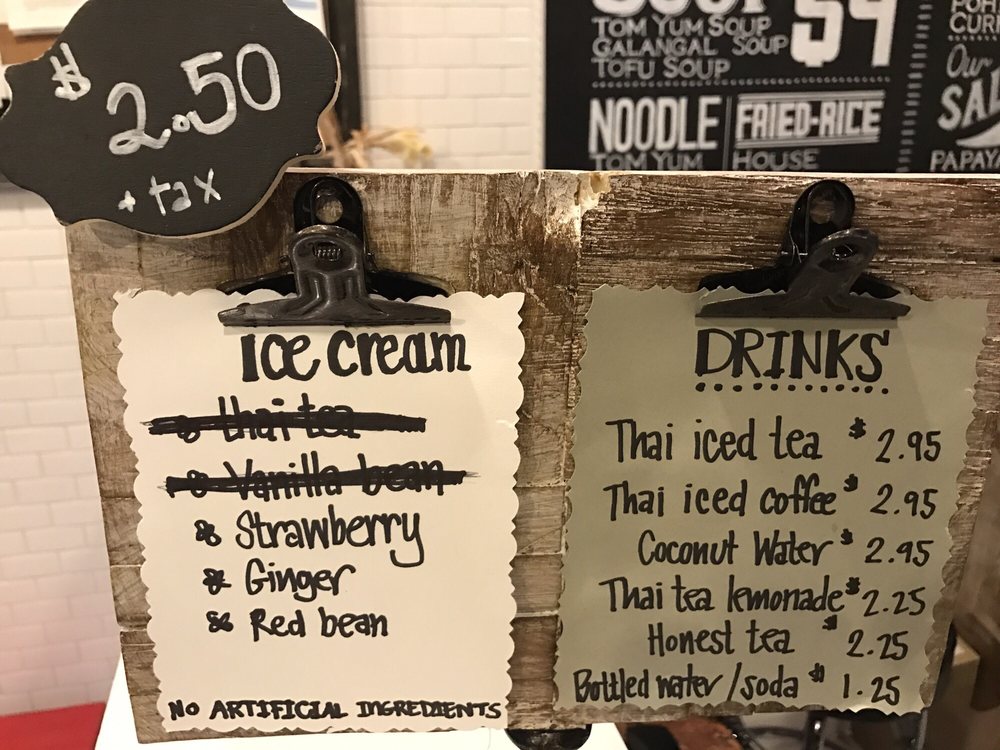 $ 2.50
+ tax
SOUP $9
TOM YUM SOUP
GALANGAL SOUP
TOFU SOUP
NOODLE
TOM YUM
FRIED-RICE
HOUSE
Our
PAPAYA
Ice cream
thai tea
Vanilla bean
Strawberry
Ginger
Red bean
NO ARTIFICIAL INGREDIENTS
DRINKS
Thai iced tea $ 2.95
Thai iced coffee $ 2.95
Coconut Water $ 2.95
Thai tea lemonade $ 2.25
Honest tea $ 2.25
Bottled water/soda $ 1.25